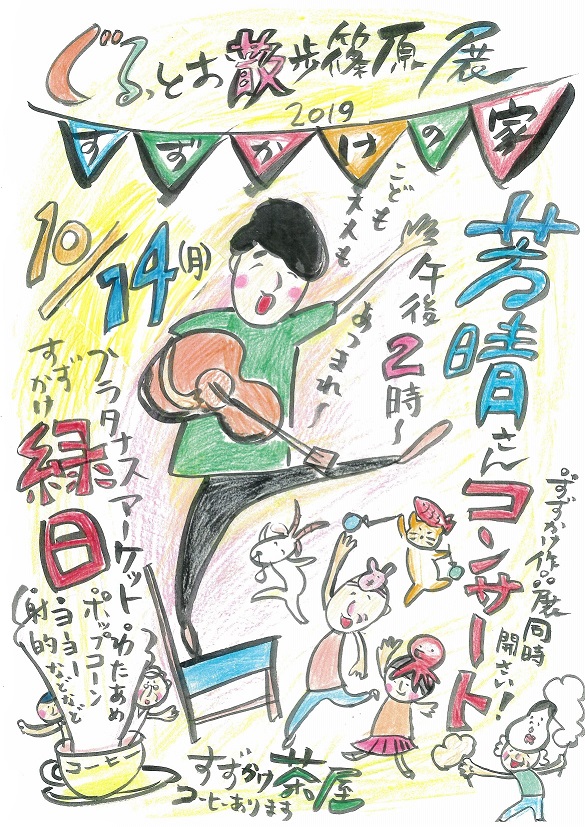 ぐるっとお散歩篠原展
2019
すずかけの家
10/14(月)
芳晴さんコンサート
午後2時〜
こどもも
大人も
あつまれ〜
すずかけ作品展同時
開さい！
プラタナスマーケット
すずかけ
縁日
わたあめ
ポップコーン
ヨーヨー
射的などなど
コーヒー
すずかけ茶屋
コーヒーあります